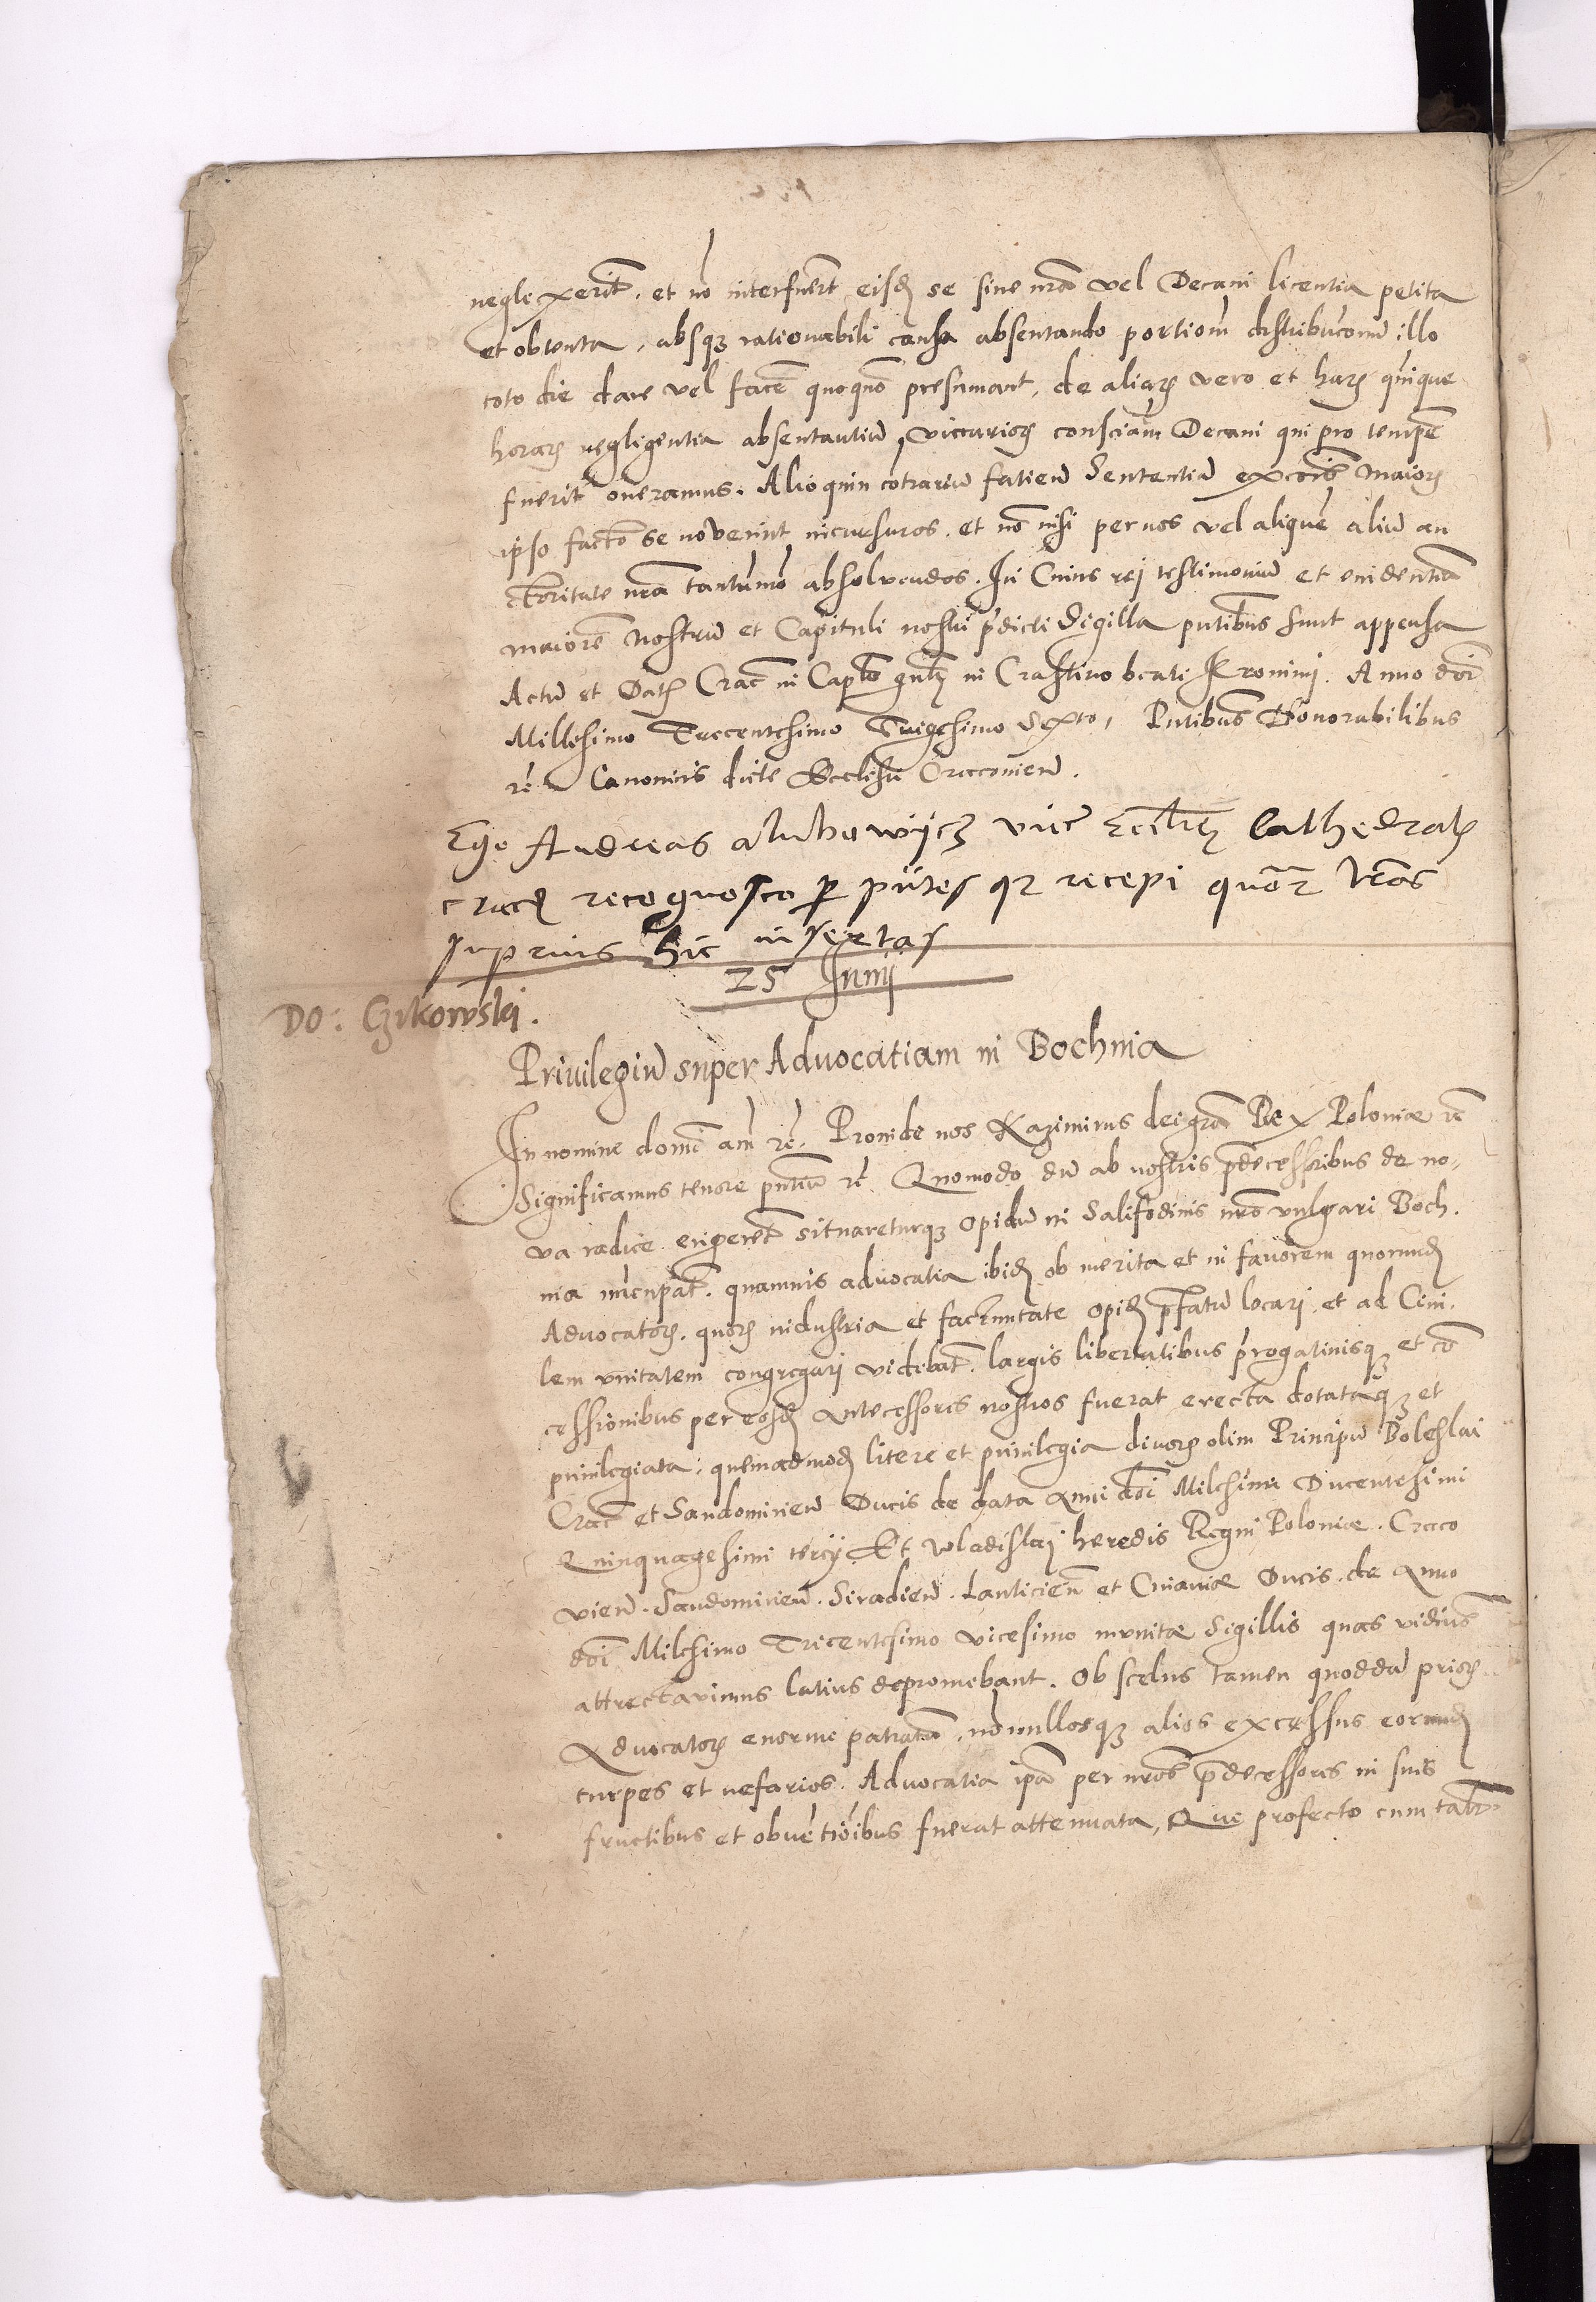 neglexerit. et nō interfuerit eisdē se sine nrā vel Decani licentia petita
et obtenta, absqz rationabili causa absentando portionū distribucionū illo
toto die dare vel facēe quoquō presumant, de aliarz vero et harz quinque
horarz negligentia absentantiū, viccariorz consciām Decani qui pro tempēe
fuerit oneramus. Alioquin cōtrariū fatien Sententiā excōis Maioris
ipso facto se noverint incursuros. et nō nisi per nos vel aliquē aliū au
ctoritate nrā tantūmō absolvendos. In Cuius rej testimoniū et euidentiā
maiorē Nostrū et Capituli nostri p̄dicti Sigilla pntibus sunt appensa
Actū et Datz Crac in Caplō gnlj in Crastino beati Jeronimj. Anno dōi
Millesimo Trecentesimo Trigesimo Sexto, Pntibus Honorabilibus
rē Canonicis dicte Ecclesie Cracovien.
Ego Andreas vic ecclie Cathedralis
cracē recognosco p pn̄tes qz recepi quōr lrās
superius hic insertas
25 Junij
DO: Czikowskj.
Priuilegiū super Aduocatiam in Bochnia
In nomine domī am rē. Proinde nos Kazimirus dei grā Rex Poloniæ rē
Significamus tenore pntiū rē Quomodo dū ab nostris p̄decessoribus de no,
va radice erigeret situareturqz opidū in Salifodinis nrō vulgari Boch.
nia nūcupat. quamuis aduocatia ibid ob merita et in fauorem quorund
Advocatorz. quorz industria et facūnitate opid p̄fatū locari, et ad Ciui.
lem vnitatem congregari videbat. largis libertatibus p̄rogatiuisqz et cō
cessionibus per eosd Antecessores nostros fuerat erecta dotataqz et
priuilegiata: quemadmod litere et priuilegia diuorz olim Principū Boleslai
Crac et Sandomirien Ducis de data Anni dōi Milesimi Ducentesimi
Quinquagesimi tercij Et Wladislaj heredis Regni Poloniæ. Craco
vien. Sandomirien. Siradien. Lanticien et Cuiauiæ Ducis. de Anno
dōi Milesimo Tricentesimo vicesimo munitæ Sigillis quas vidimus
attrectavimus latius depromebant. Ob scelus tamen quoddā priorz
Advocatorz enorme patratū, nōnullosqz alios excessus eorund
turpes et nefarios. Advocatia ipā per nros p̄decessores in suis
fructibus et obuētioībus fuerat attenuata, Que profecto cum